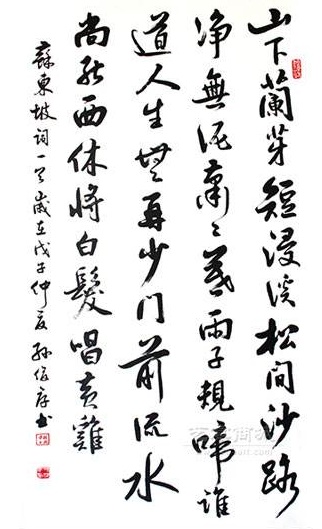 山下蘭芽短浸溪松間沙路
净無泥蕭〻暮雨子規啼誰
道人生無再少门前流水
尚能西休將白髮唱黄雞
蘇東坡詞一首歲在戊子仲夏孫书